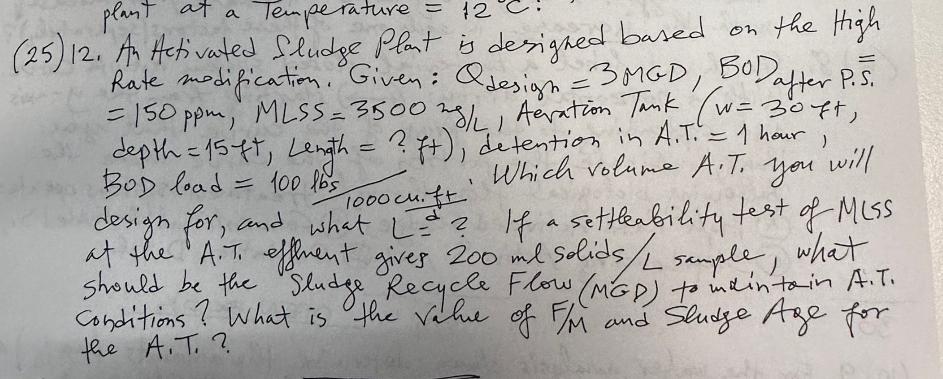 plant at a Temperature = 12°C.
(25) 12. An Activated Sludge Plant is designed based on the High
Rate modification. Given: Qdesign = 3 MGD, BOD after P.S.
= 150 ppm, MLSS = 3500 mg/L, Aeration Tank (w = 30 ft,
depth = 15 ft, Length = ? ft), detention in A.T. = 1 hour,
BOD load = 100 lbs/1000 cu.ft/d. Which volume A.T. you will
design for, and what L = ? If a settleability test of MLSS
at the A.T. effluent gives 200 ml solids/L sample, what
should be the Sludge Recycle Flow (MGD) to maintain A.T.
Conditions? What is the value of F/M and Sludge Age for
the A.T.?